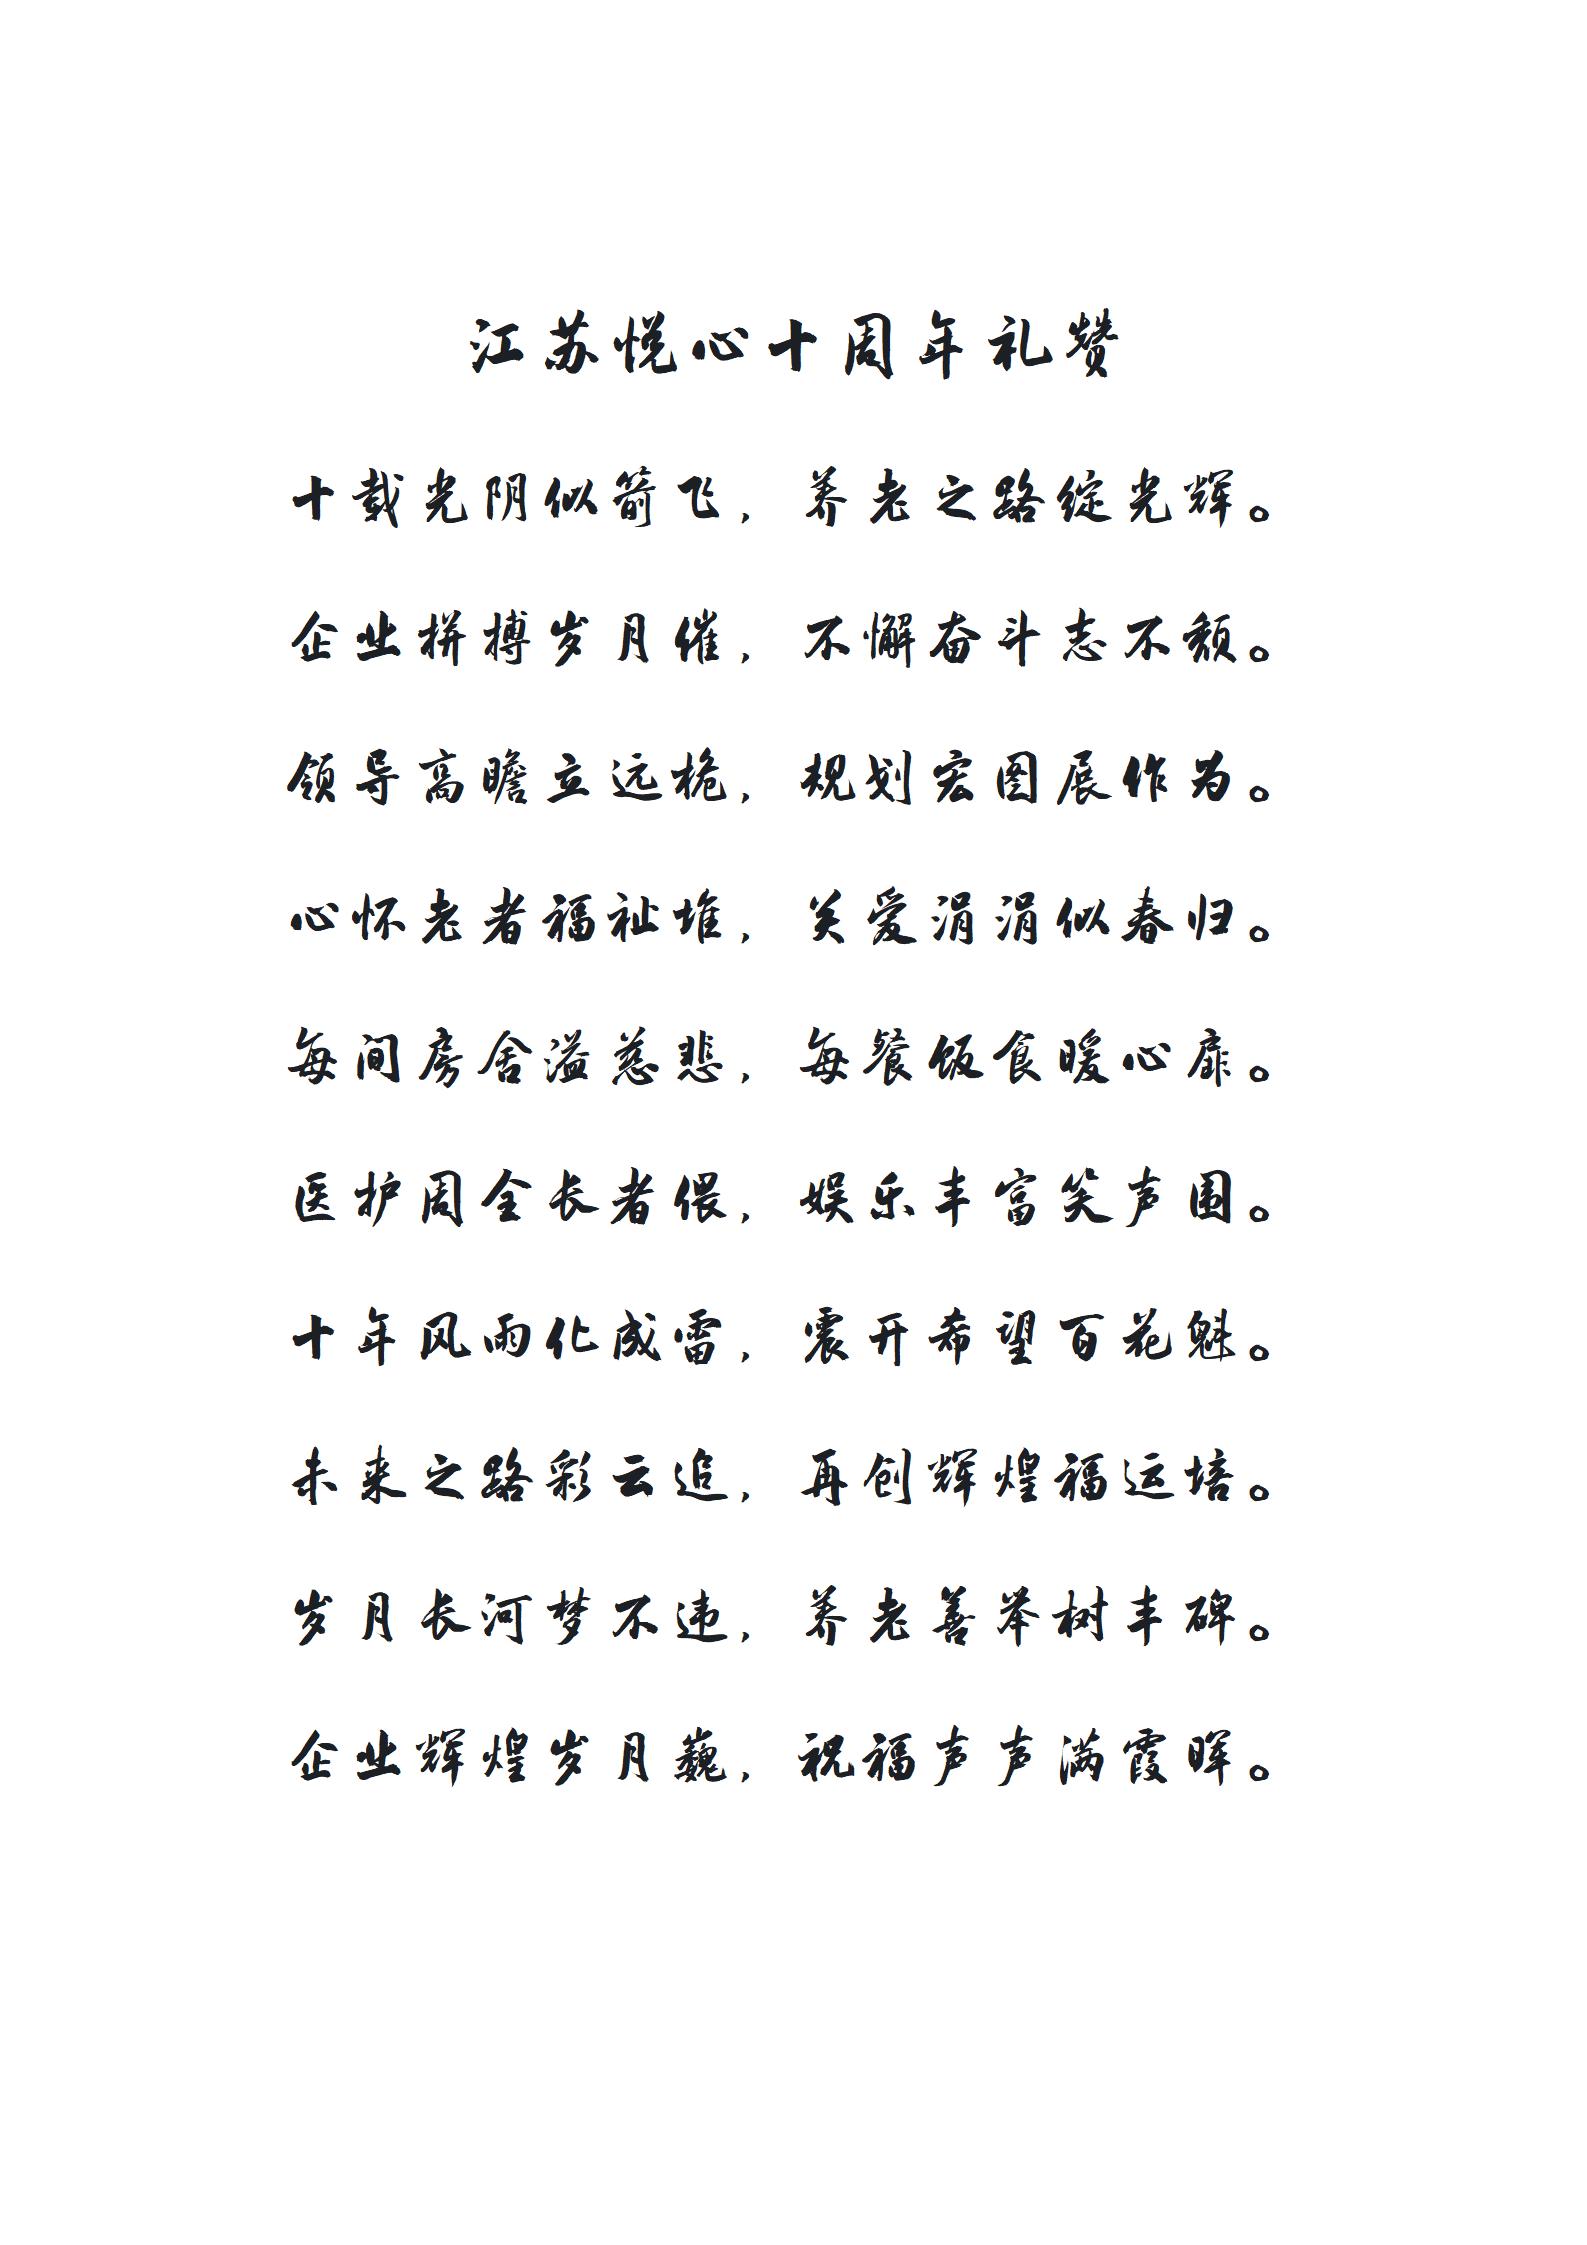 江苏悦心十周年礼赞
十载光阴似箭飞，养老之路绽光辉。
企业拼搏岁月催，不懈奋斗志不颓。
领导高瞻立远桅，规划宏图展作为。
心怀老者福祉堆，关爱涓涓似春归。
每间房舍溢慈悲，每餐饭食暖心扉。
医护周全长者偎，娱乐丰富笑声围。
十年风雨化成雷，震开希望百花魁。
未来之路彩云追，再创辉煌福运培。
岁月长河梦不违，养老善举树丰碑。
企业辉煌岁月巍，祝福声声满霞晖。